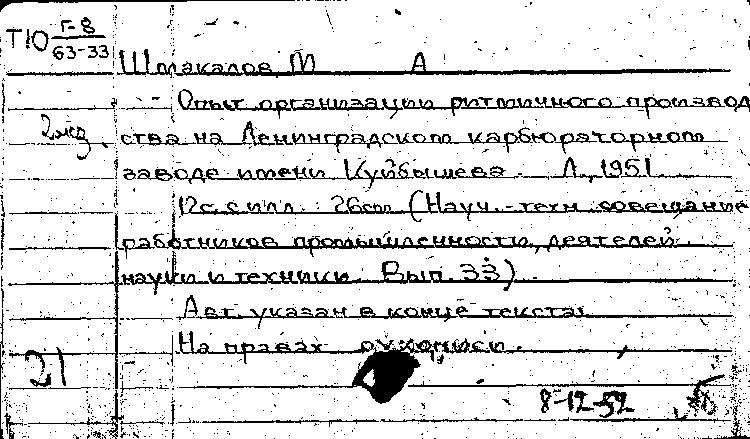 Т10 Г-8
63-33
Шмакалов М А
- Опыт организации ритмичного производ
2 экз. ства на Ленинградском карбюраторном
заводе имени Куйбышева. Л., 1951.
12с. с илл. 26см (Науч.-техн. совещание
работников промышленности, деятелей
науки и техники. Вып. 33).
Авт. указан в конце текста.
На правах рукописи.
21
8-12-52